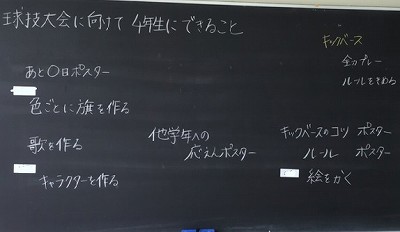 球技大会に向けて 4年生にできること
あと〇日ポスター
色ごとに旗を作る
歌を作る
キャラクターを作る
他学年への
応えんポスター
キックベース
全力プレー
ルールをまもる
キックベースのコツ ポスター
ルール ポスター
絵をかく